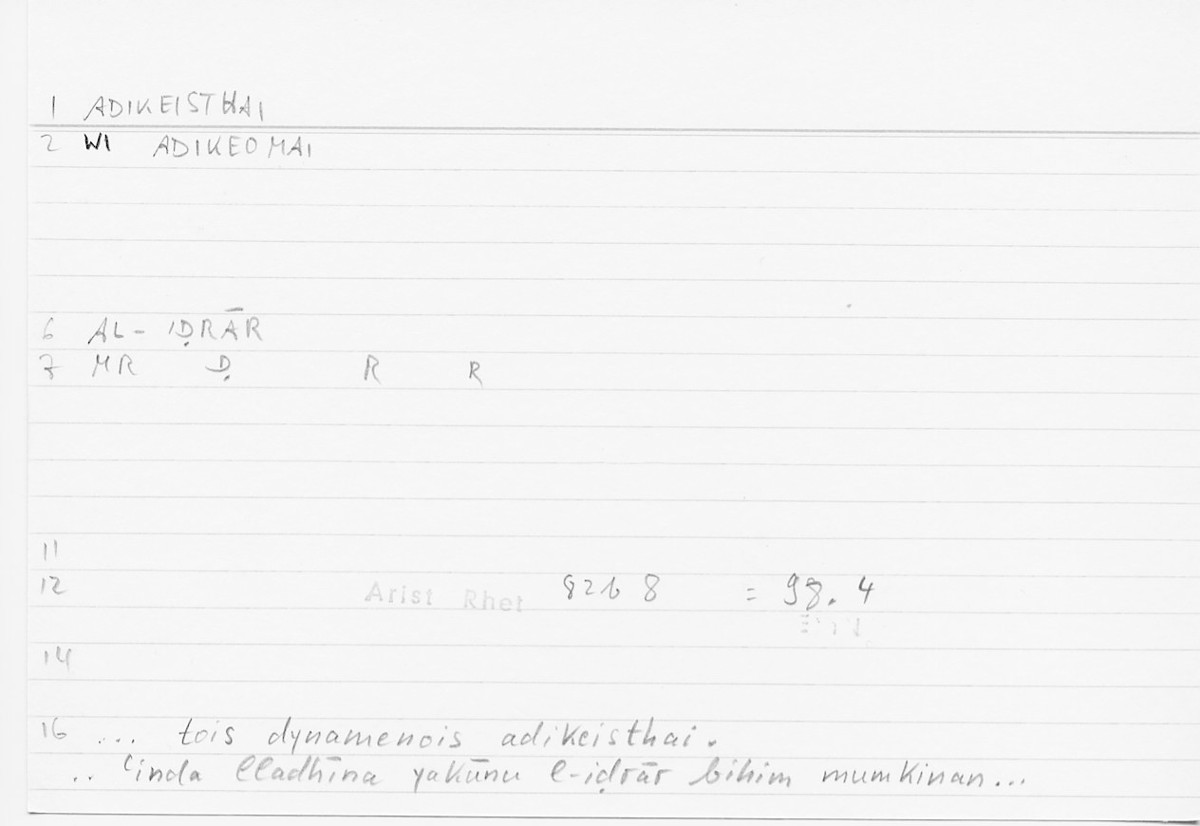 1 ADIKEISTHAI
2 WI ADIKEOMAI
6 AL-IḌRĀR
7 MR Ḍ R R
11
12 Arist Rhet 82b 8 = 98.4
14
16 ... tois dynamenois adikeisthai.
.. ʿinda lladhīna yakūnu l-iḍrār bihim mumkinan...